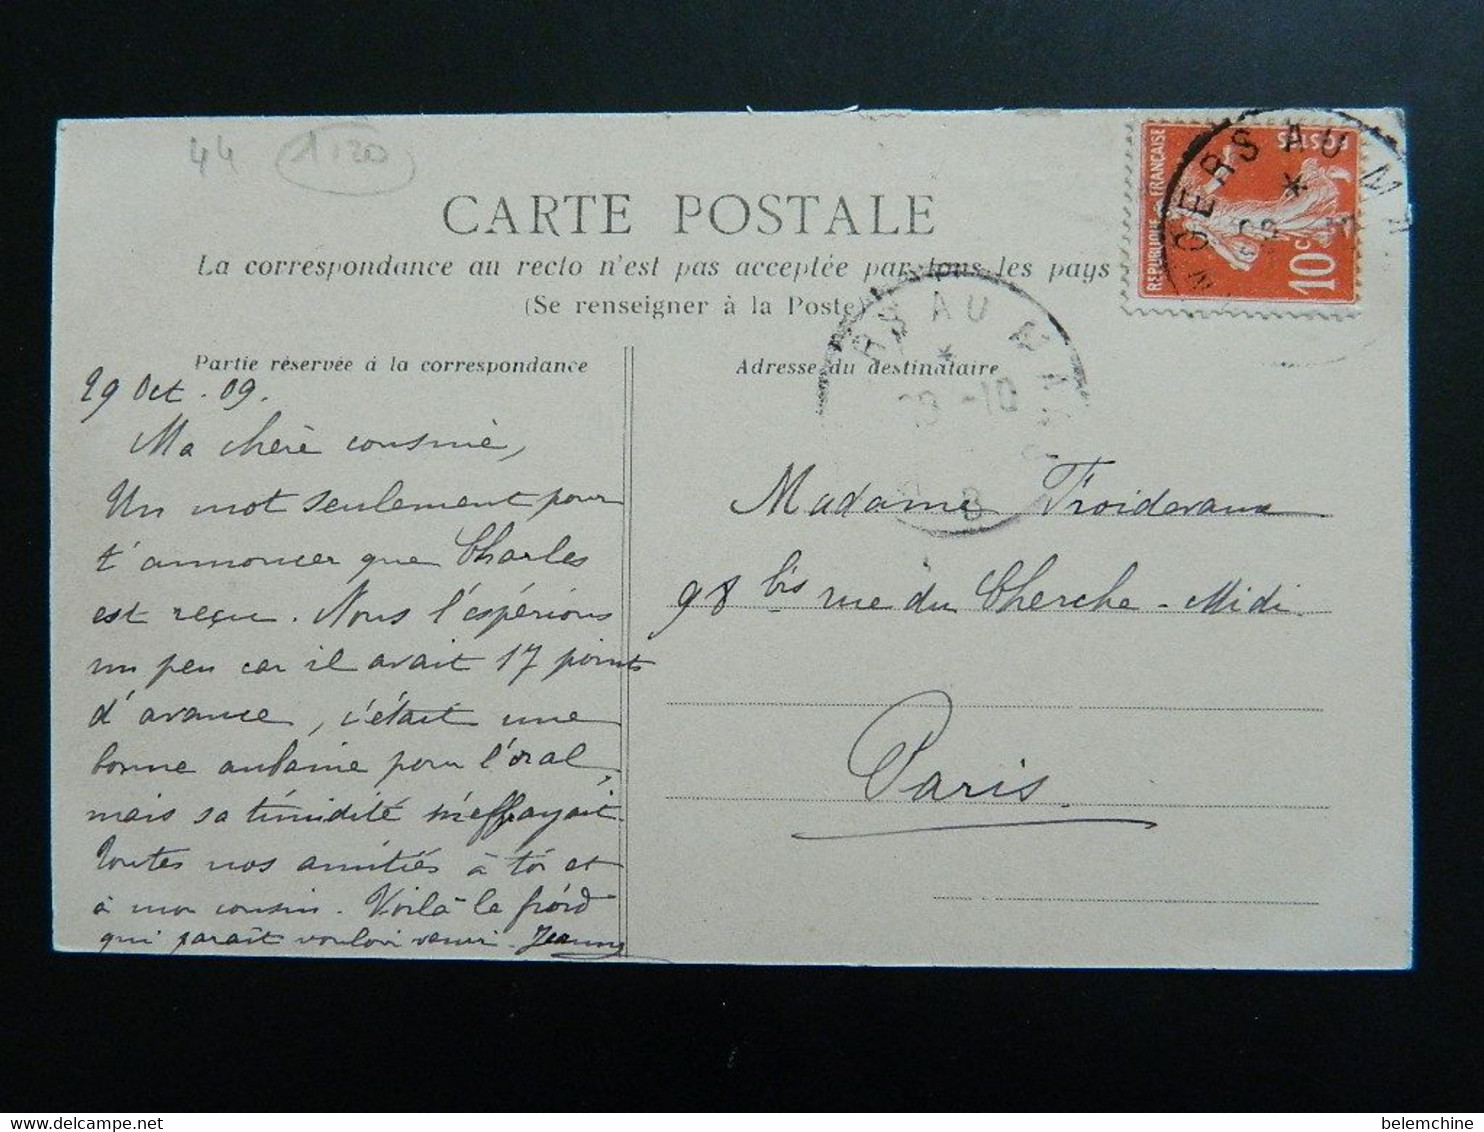 44 1,20
CARTE POSTALE
La correspondance au recto n'est pas acceptée par tous les pays
(Se renseigner à la Poste)
Partie réservée à la correspondance
29 Oct. 09.
Ma chère cousine,
Un mot seulement pour
t'annoncer que Charles
est reçu. Nous l'espérions
un peu car il avait 17 points
d'avance, c'était une
bonne aubaine pour l'oral,
mais sa timidité m'effrayait.
Toutes nos amitiés à toi et
à mon cousin. Voilà le froid
qui paraît vouloir venir. Jeanne
Adresse du destinataire
Madame Froidevaux
98 bis rue du Cherche-Midi
Paris.
REPUBLIQUE FRANÇAISE
POSTES
10 c
ERS AU M
AU
-10
belemchine